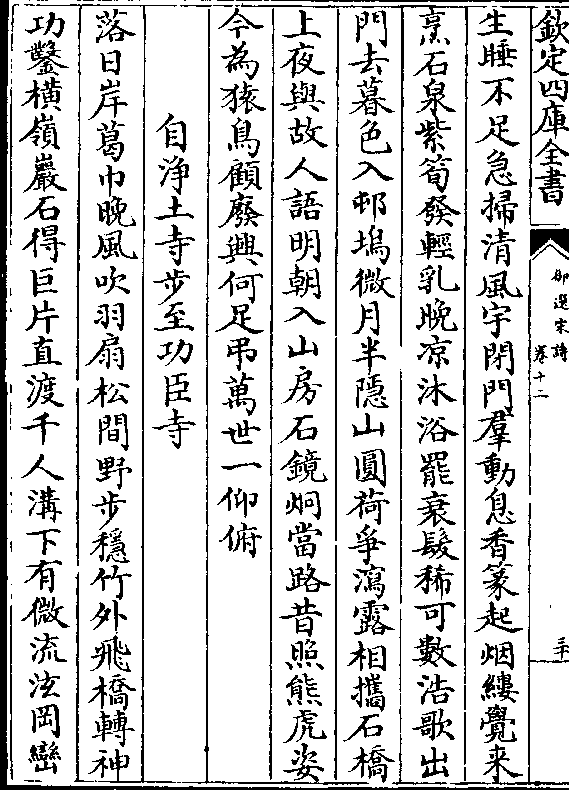 欽定四庫全書
御選宋詩
卷十二
三十
生睡不足急掃清風宇閉門羣動息香篆起烟縷覺來
烹石泉紫筍發輕乳晚凉沐浴罷衰髮稀可數浩歌出
門去暮色入邨塢微月半隱山圓荷爭瀉露相攜石橋
上夜與故人語明朝入山房石鏡炯當路昔照熊虎姿
今為猿鳥顧廢興何足弔萬世一仰俯
自淨土寺步至功臣寺
落日岸葛巾晚風吹羽扇松間野步穩竹外飛橋轉神
功鑿橫嶺巖石得巨片直渡千人溝下有微流泫岡巒